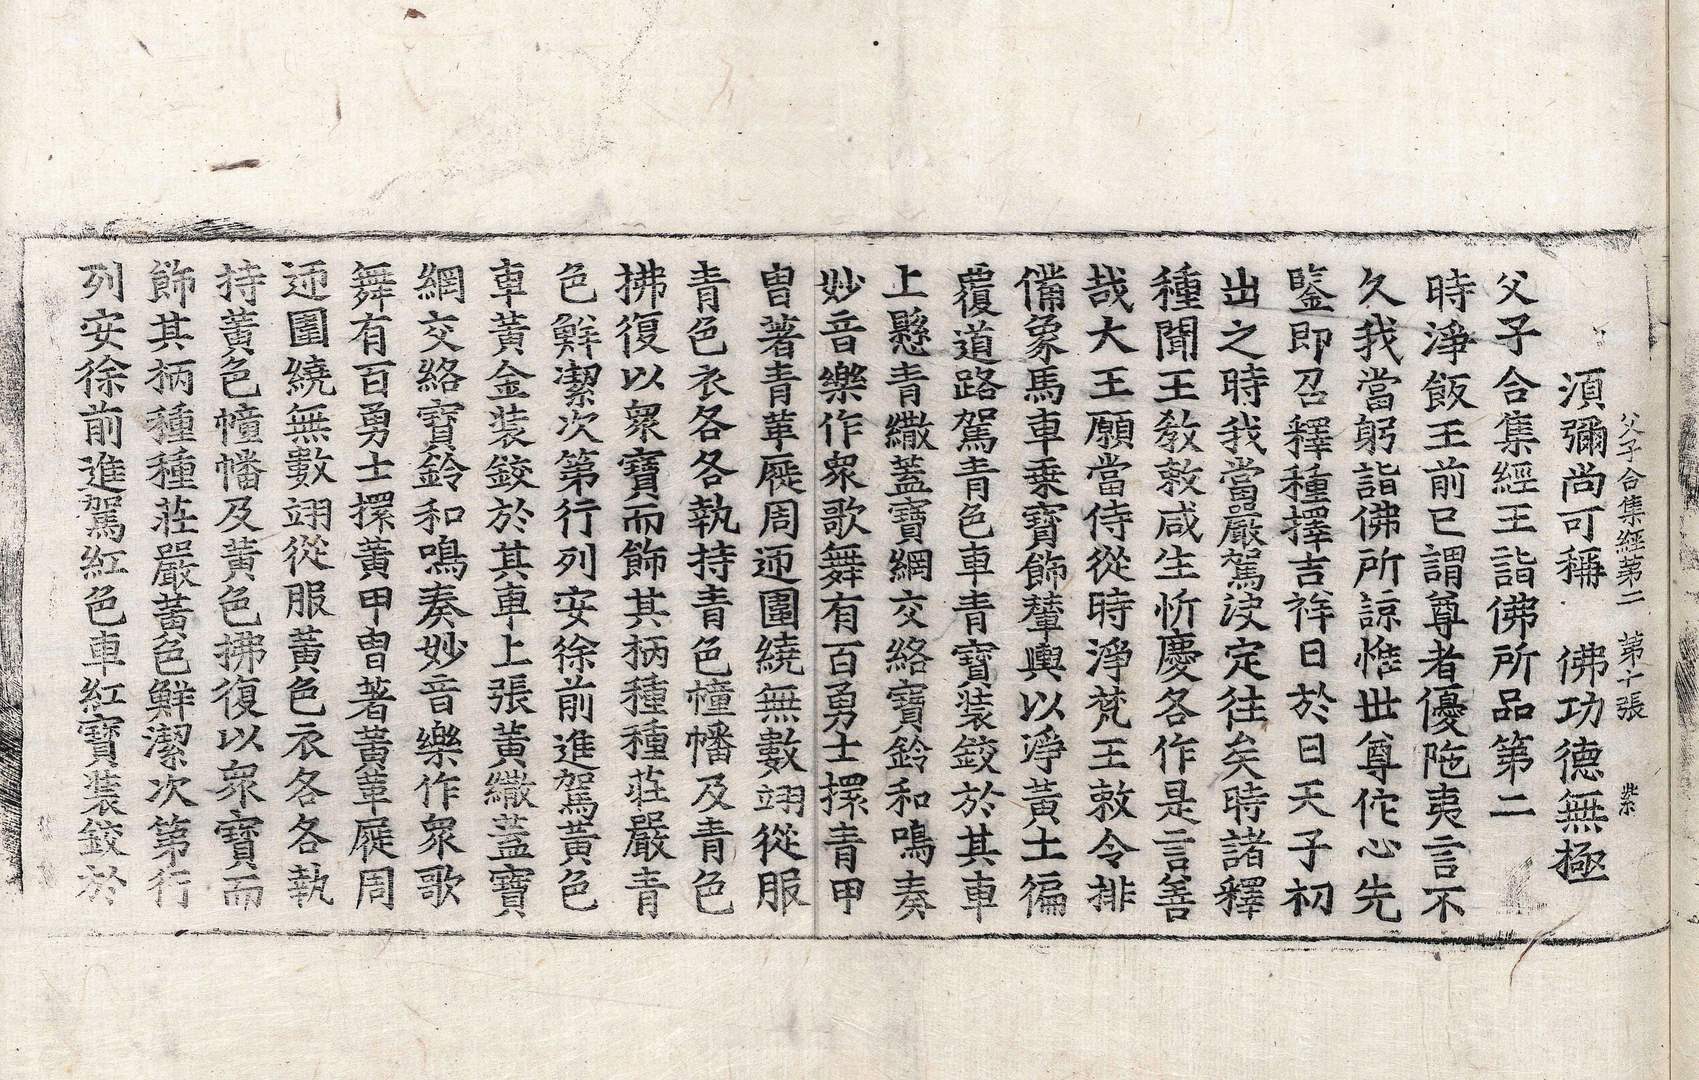 父子合集經第二　第十張　紫
須彌尚可稱　佛功德無極
父子合集經王詣佛所品第二
時淨飯王前已謂尊者優陁夷言不
久我當躬詣佛所諒惟世尊佗心先
鑒即召釋種擇吉祥日於日天子初
出之時我當嚴駕決定往矣時諸釋
種聞王教敕咸生忻慶各作是言善
哉大王願當侍從時淨梵王敕令排
俻象馬車乗寶飾輦輿以淨黃土徧
覆道路駕青色車青寶裝鉸於其車
上懸青繖蓋寶網交絡寶鈴和鳴奏
妙音樂作眾歌舞有百勇士擐青甲
冑著青革屣周迊圍繞無數翊從服
青色衣各各執持青色幢幡及青色
拂復以眾寶而飾其柄種種莊嚴青
色鮮潔次第行列安徐前進駕黃色
車黃金裝鉸於其車上張黃繖蓋寶
網交絡寶鈴和鳴奏妙音樂作眾歌
舞有百勇士擐黃甲冑著黃革屣周
迊圍繞無數翊從服黃色衣各各執
持黃色幢幡及黃色拂復以眾寶而
飾其柄種種莊嚴黃色鮮潔次第行
列安徐前進駕紅色車紅寶裝鉸於